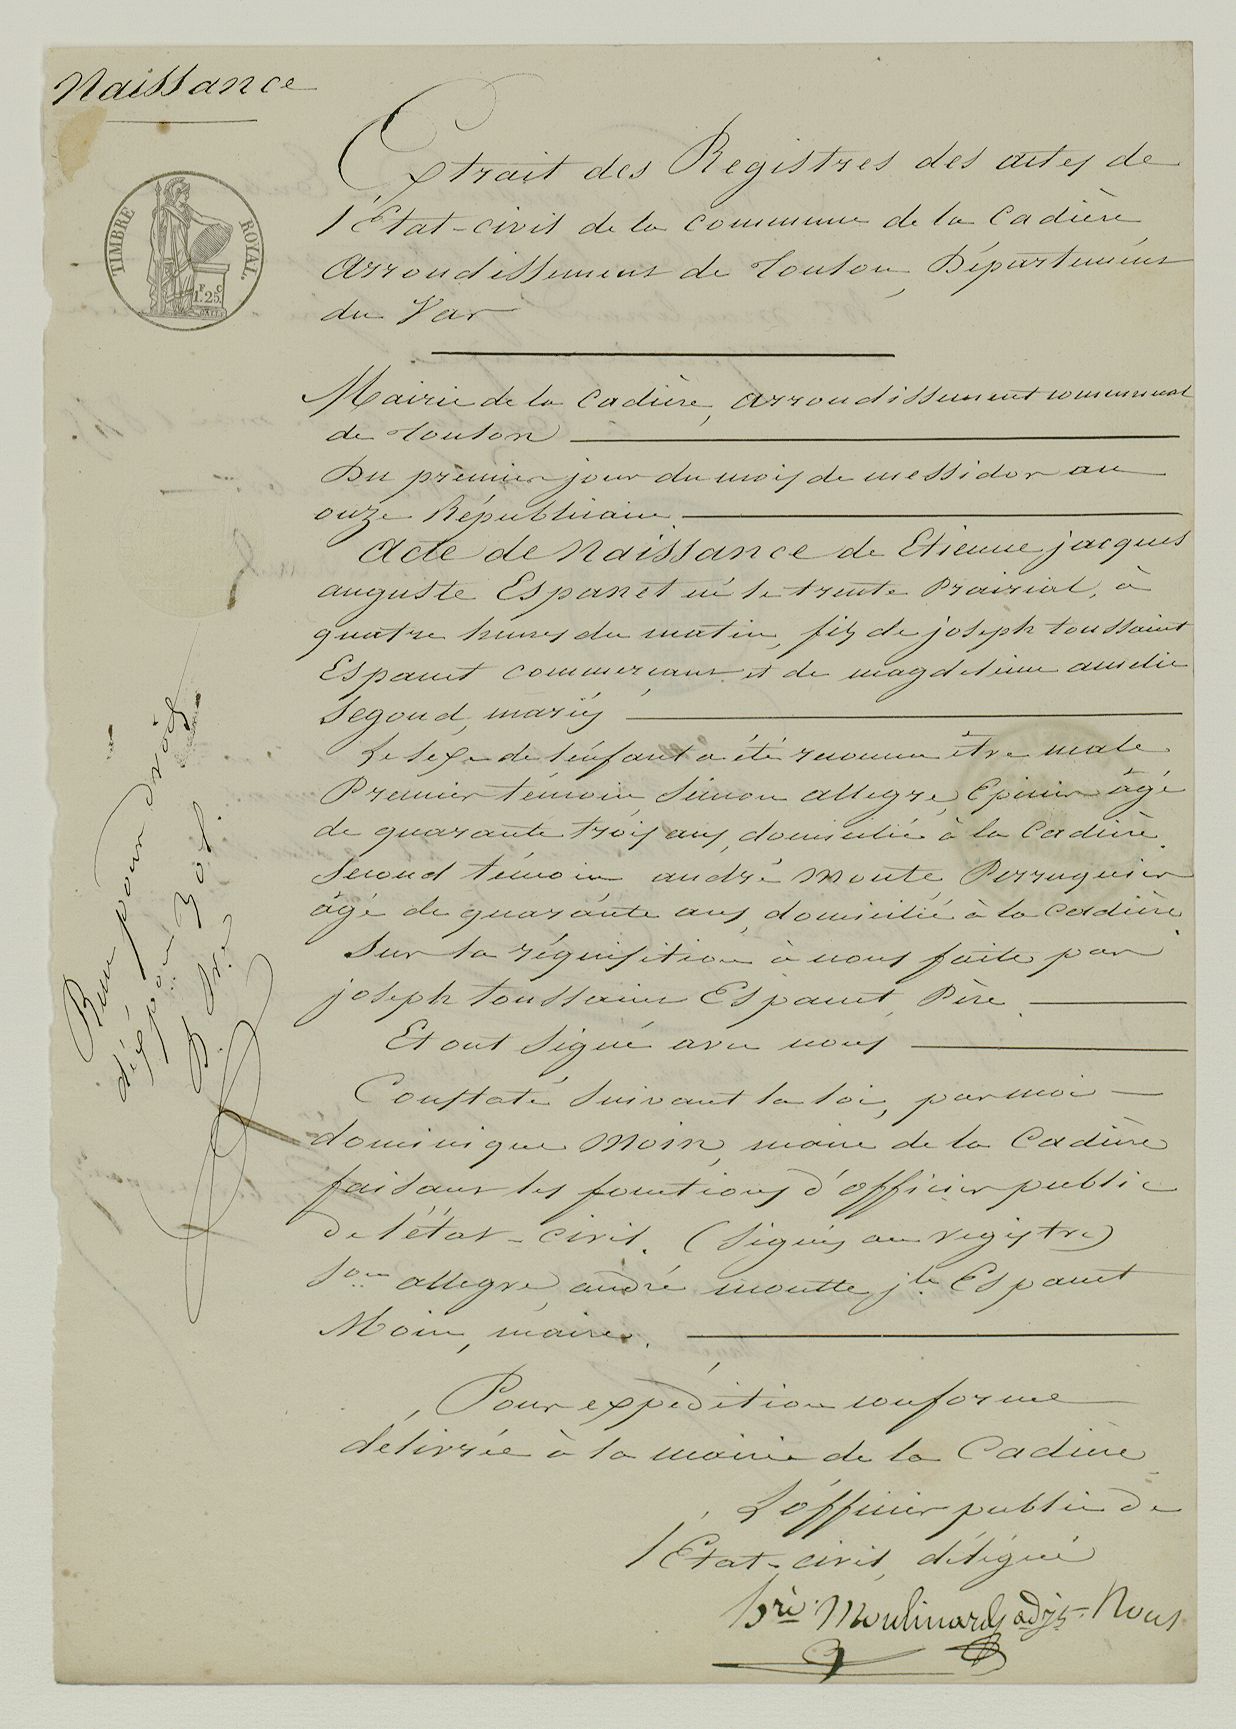 Naissance
TIMBRE ROYAL
1F. 25c
Extrait des Registres des actes de
l'Etat-civil de la commune de la Cadière
arrondissement de Toulon, Département
du Var
Mairie de la Cadière, arrondissement communal
de Toulon
Du premier jour du mois de messidor an
onze Républicain
Acte de Naissance de Etienne jacques
auguste Espanet né le trente Prairial, à
quatre heures du matin, fils de joseph toussaint
Espanet commerçant et de magdeleine amélie
Segond, mariés
Le sexe de l'enfant a été reconnu être male
Premier témoin, Simon allegre, Epicier âgé
de quarante trois ans, domicilié à la Cadière.
Second témoin andré Moutte, Perruquier
âgé de quarante ans, domicilié à la Cadière
Sur la réquisition à nous faite par
joseph toussaint Espanet, Père.
Et ont signé avec nous
Constaté suivant la loi, par moi
dominique Moin, maire de la Cadière
faisant les fonctions d'officier public
de l'état-civil. (signés au registre)
Son allegre, andré moutte, jh Espanet
Moin, maire.
Pour expédition conforme
délivrée à la mairie de la Cadière
L'officier public de
l'Etat-civil, délégué
Moulinard adjt
Bon pour droit
d'expon